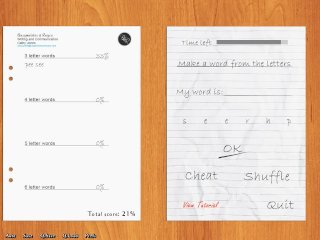 Writing and Communication
3 letter words 33%
pee see
4 letter words 0%
5 letter words 0%
6 letter words 0%
Total score: 21%
Time left:
Make a word from the letters
My word is:
s e e r h p
OK
Cheat Shuffle
View Tutorial ...
Quit